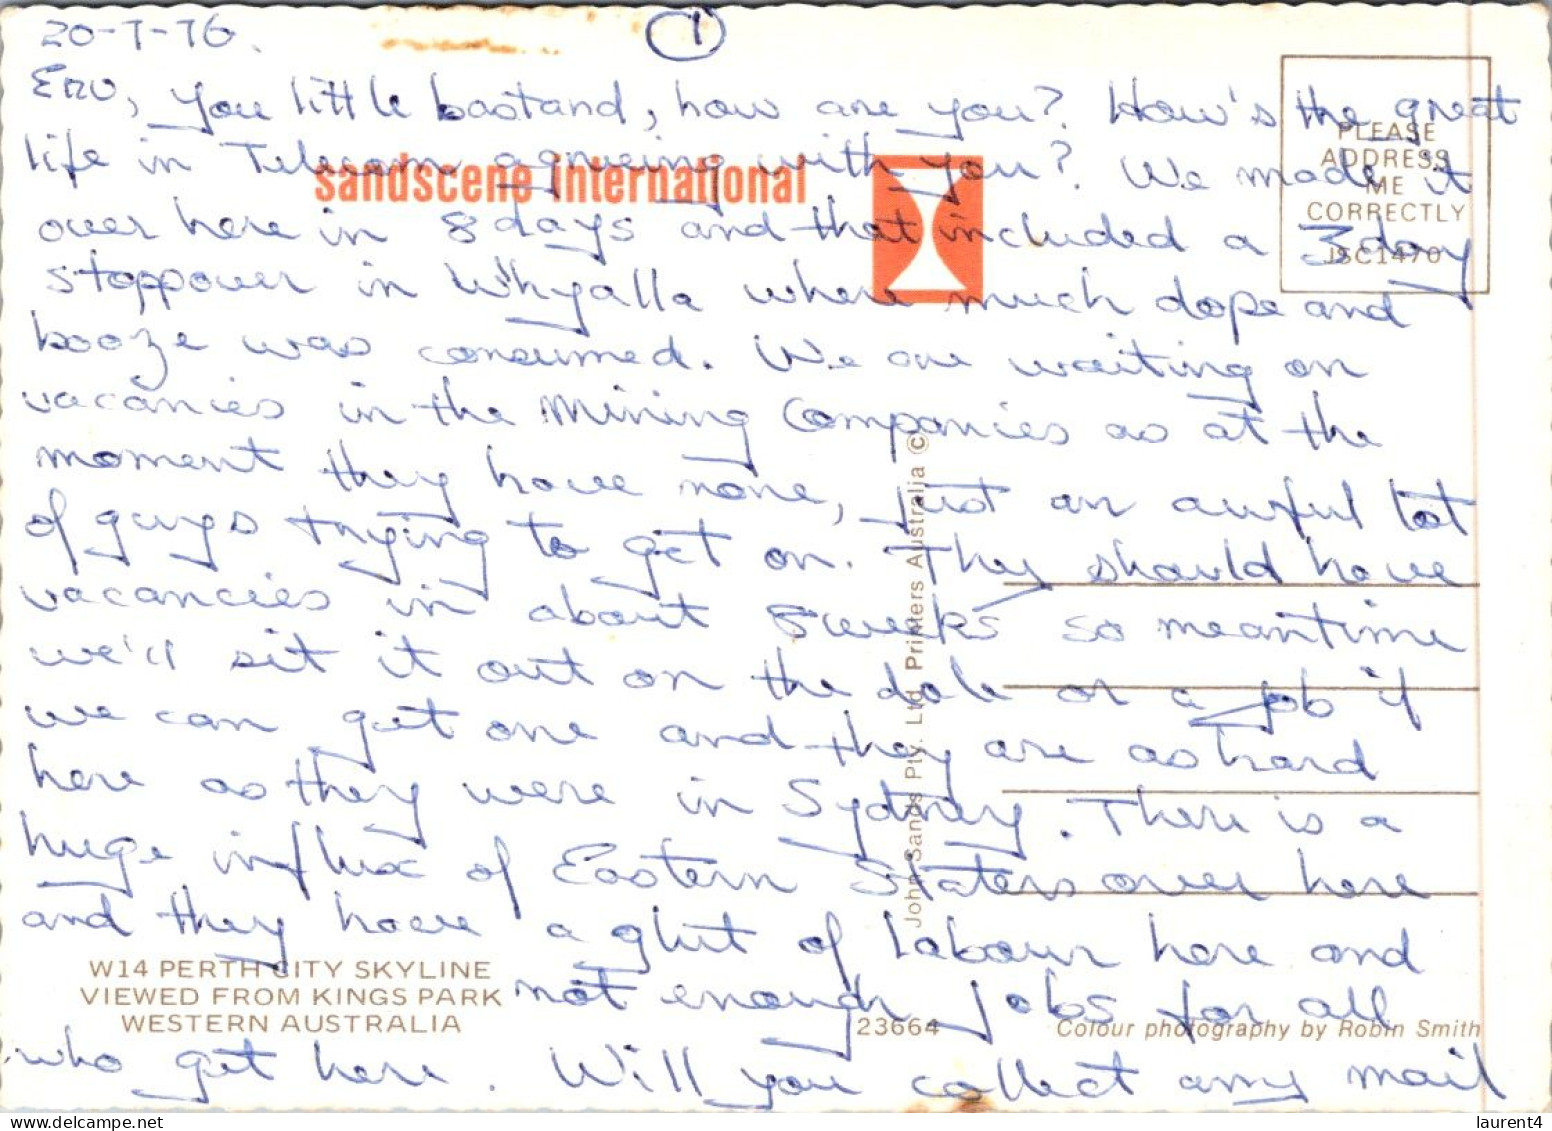 20-7-76.
1
Eno, you little bastard, how are you? How's the great
life in Telecom agreeing with you? We made it
over here in 8 days and that included a 3 day
stoppover in Whyalla where much dope and
booze was consumed. We are waiting on
vacancies in the Mining Companies as at the
moment they have none, just an awful lot
of guys trying to get on. They should have
vacancies in about 8 weeks so meantime
we'll sit it out on the dole or a job if
we can get one and they are as hard
here as they were in Sydney. There is a
huge influx of Eastern Staters over here
and they have a glut of labour here and
not enough jobs for all
who get here. Will you collect any mail
sandscene international
PLEASE
ADDRESS
ME
CORRECTLY
JSC1470
John Sands Pty. Ltd. Printers Australia ©
W14 PERTH CITY SKYLINE
VIEWED FROM KINGS PARK
WESTERN AUSTRALIA
23664
Colour photography by Robin Smith
laurent4